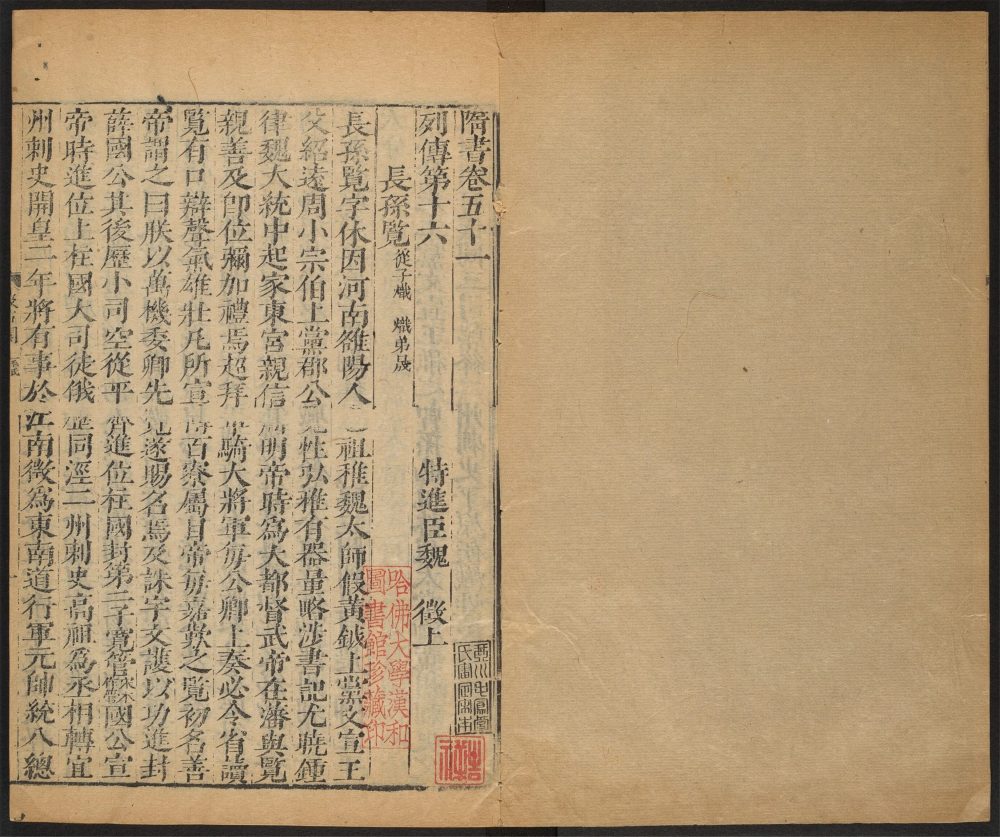 隋書卷五十一
列傳第十六 特進臣魏 徵上
長孫覽 從子熾 熾弟晟
長孫覽字休因河南雒陽人 祖稚魏太師假黃鉞上黨文宣王
父紹遠周小宗伯上黨郡公覽性弘雅有器量略涉書記尤曉鍾
律魏大統中起家東宮親信 明帝時為大都督武帝在藩與覽
親善及卽位彌加禮焉超拜車騎大將軍每公卿上奏必令省讀
覽有口辯聲氣雄壯凡所宣 百寮屬目帝每嘉歎之覽初名善
帝謂之曰朕以萬機委卿先覽遂賜名焉及誅宇文護以功進封
薛國公其後歷小司空從平齊進位柱國封第二子寬管永本作管國公宣
帝時進位上柱國大司徒俄歷同涇二州刺史高祖為丞相轉宜
州刺史開皇二年將有事於江南徵為東南道行軍元帥統八總
哈佛大學漢和
圖書館珍藏印